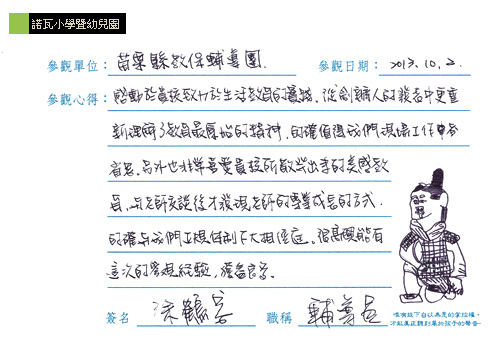 諾瓦小學暨幼兒園
參觀單位：苗栗縣教保輔導團 參觀日期：2013.10.2.
參觀心得：感動於貴校致力於生活教育的實踐。從創辦人的報告中更重
新理解了教育最原始的精神，的確值得我們現場工作者多
省思。另外也非常喜愛貴校所散發出來的美感教
育，與老師交談後才發現老師的專業成長的方式，
的確與我們立規体制下大相徑庭。很高興能有
這次的參觀經驗，獲益良多。
簽名 職稱 輔導員
唯有放下自以為是的掌控權，
才能真正聽到屬於孩子的聲音